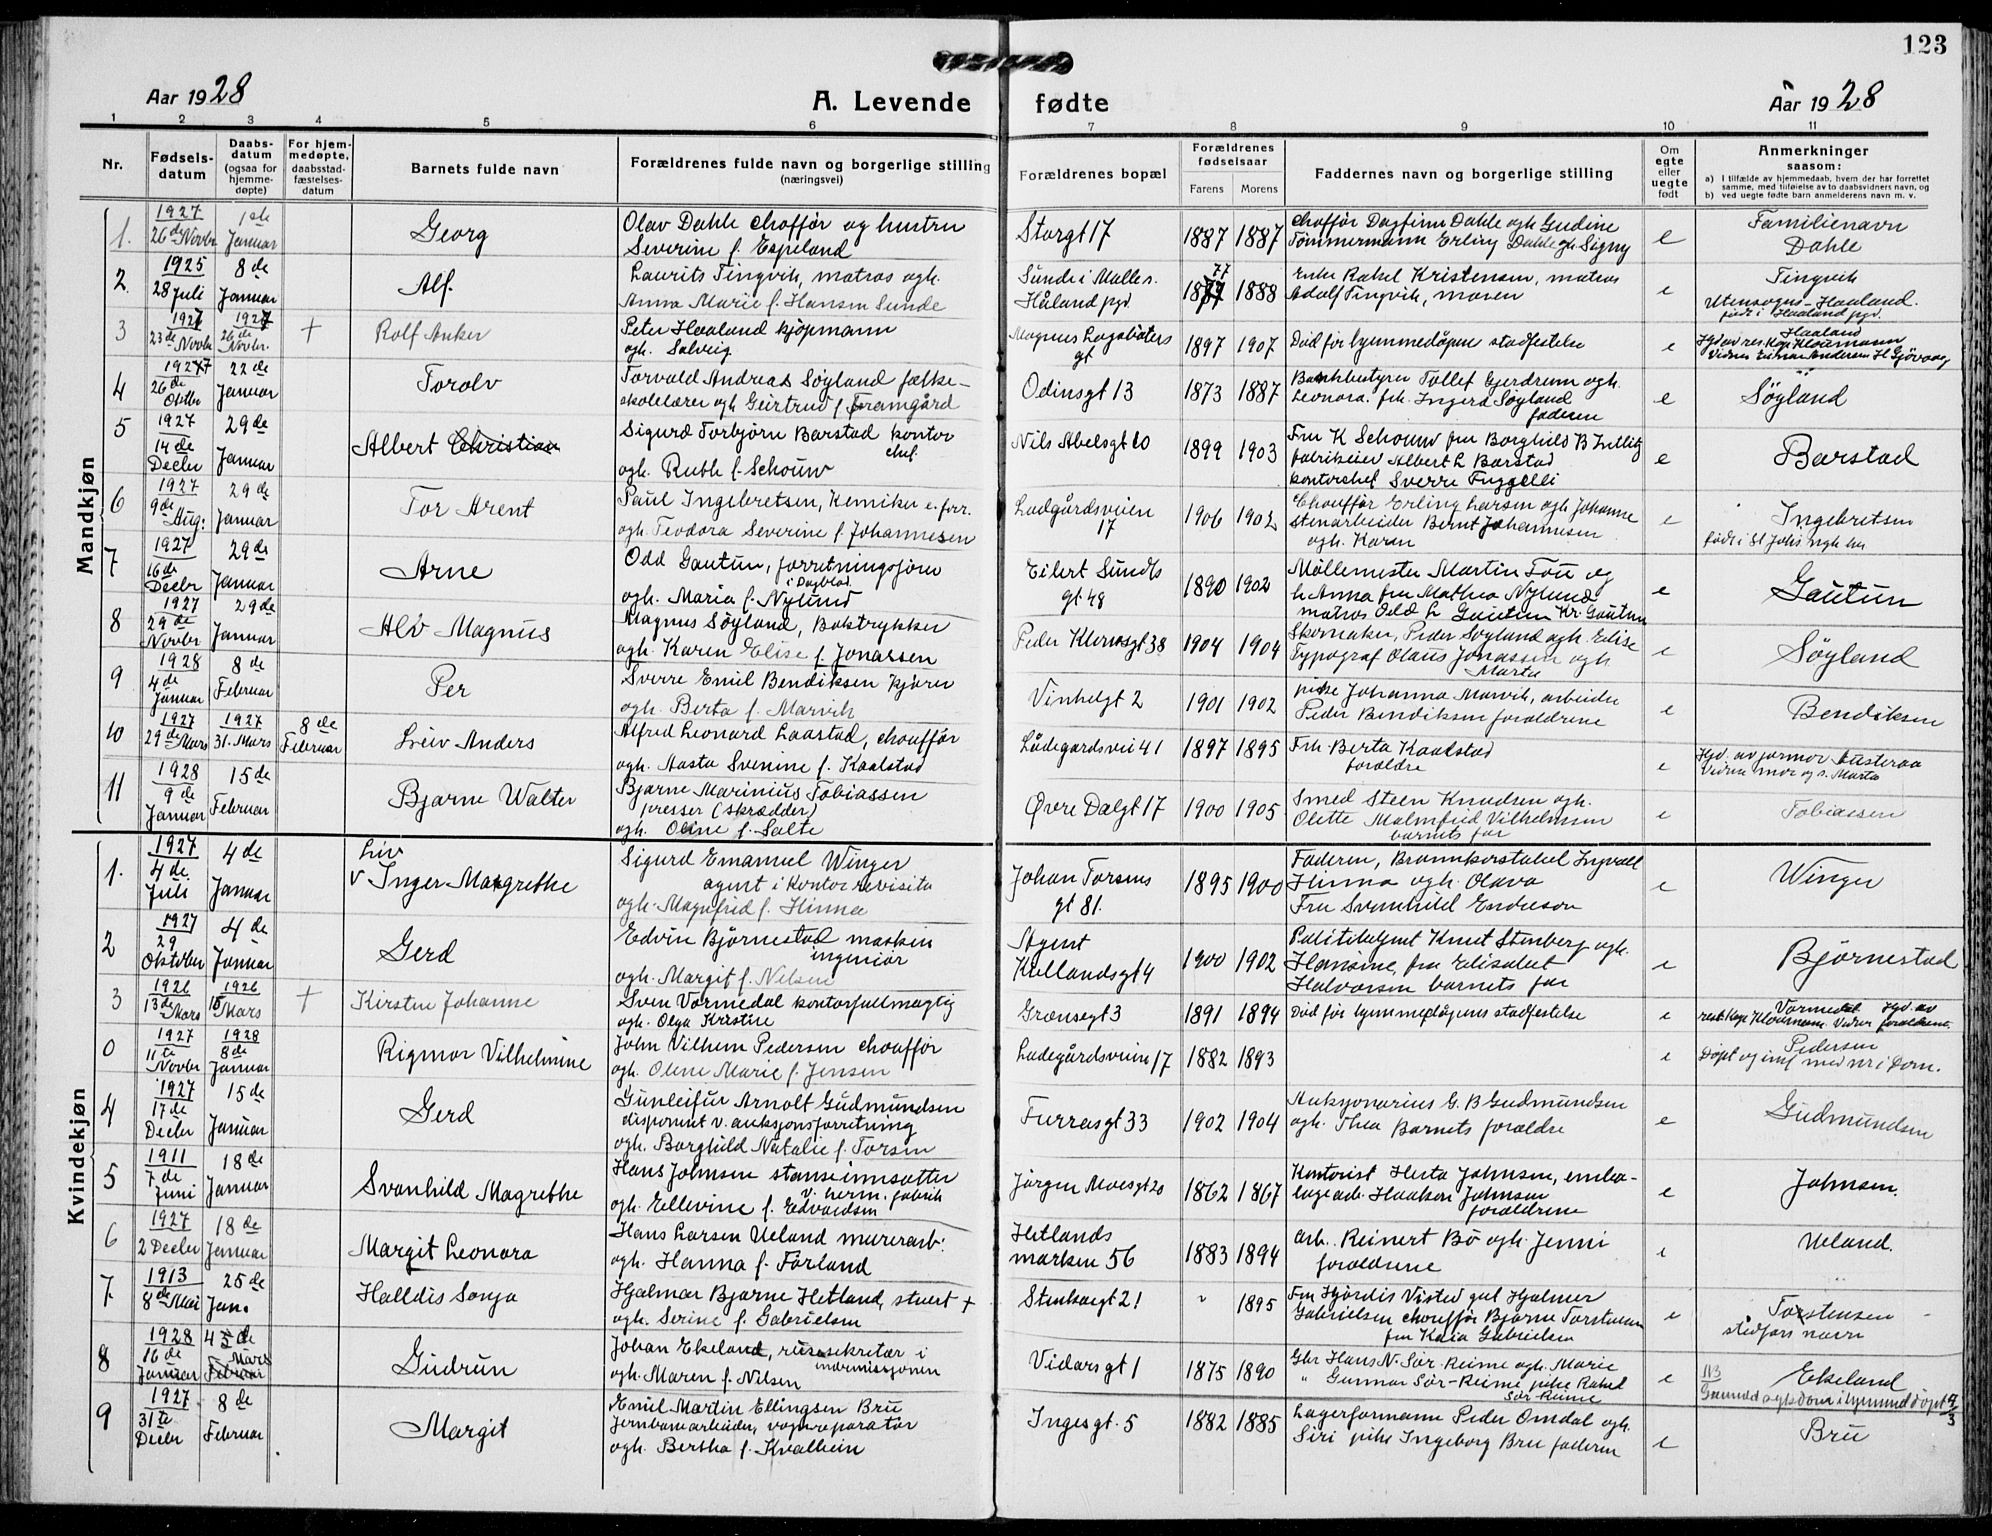 123
Aar 1928
A. Levende fødte
Aar 1928
1 2 3 4 5 6 7 8 9 10 11
Nr.
Fødsels-datum
Daabs-datum (ogsaa for hjemme-døpte)
For hjem-medøpte, daabsstad-fæstelses-datum
Barnets fulde navn
Forældrenes fulde navn og borgerlige stilling (næringsvei)
Forældrenes bopæl
Forældrenes fødselsaar
Farens Morens
Faddernes navn og borgerlige stilling
Om egte eller uegte født
Anmerkninger saasom:
a) I tilfælde av hjemmedaab, hvem der har forrettet samme, med tilføielse av to daabsvidners navn, og
b) ved uegte fødte barn anmelderens navn m. v.
Mandkjøn
1. 1927 26de Novbr 1ste Januar Georg
Olav Dahle chofför og hustru
Severine f. Espeland
Storgt 17 1887 1887
Chofför Dagfinn Dahle ogh Gudine
Tømmermann Erling Dahle gh. Signy
e Familienavn
Dahle
2. 1925 28 Juli 8de Januar Alf.
Laurits Tingvik, matros ogh.
Anna Marie f. Hansen Sunde
Sunde i Malle s.
Håland pgd. 77 1888
Enke Rakel Kristensen, matros
Adolf Tingvik, moren
e Tingvik
Utensogns-Haaland.
født i Haaland pgd.
3 1927 23de Novbr 1927 26de Novbr. + Rolf Anker
Peter Haaland kjøpmann
ogh. Solveig
Magnus Lagabøters gt 1897 1907
Död för hjemmedåpens stadfestelse
e Haaland
4 1927 26de Oktbr 22de Januar Torolv
Torvald Andreas Søyland folke-
skolelærer ogh Geirtrud f. Framgård
Odinsgt 13 1873 1887
Bankbestyrer Tollef Gjerdrum ogh.
Leonora. frk. Ingerd Søyland
faderen
e Søyland
5 1927 14de Decbr 29de Januar Albert Christian
Sigurd Torbjörn Barstad kontor
chef
ogh. Ruth f. Schouw
Nils Abelsgt 20 1899 1903
Fru K Schouw fru Borghild B
fabrikeier Albert L Barstad
kontorchef Sverre Fuggelli
e Barstad
6 1927 9de Aug: 29de Januar Tor Arent
Paul Ingebretsen, Kemiker e. forr.
ogh Teodora Severine f. Johannesen
Ladgårdsveien 17 1906 1902
Chouffør Erling Larsen ogh Johanne
stenarbeider Bernt Johannesen
ogh. Karen
e Ingebretsen
7 1927 16de Decbr 29de Januar Arne
Odd Gautun, forretningsförer
i Dagblad.
ogh. Maria f. Nylund
Eilert Sundts gt 48 1890 1902
Møllemester Martin Tou og
h. Anna fru Mathea Nylund
matros Odd L Gautun Kr. Gautun
e Gautun
8 1927 29de Novbr 29de Januar Alv Magnus
Magnus Søyland, Boktrykker
ogh. Karen Elise f. Jonassen
Peder Klowsgt 38 1904 1904
Skomaker, Peder Søyland ogh. Elise
Typograf Olaus Jonassen ogh
Marta
e Søyland
9 1928 4de Januar 8de Februar Per
Sverre Emil Bendiksen kjører
ogh. Berta f. Marvik
Vinhelgt 2 1901 1902
pike Johanna Marvik, arbeider
Peder Bendiksen foreldrene
e Bendiksen
10 1927 29de Mars 1927 31. Mars 8de Februar Leiv Anders
Alfred Leonard Laastad, chouffør
ogh. Aasta Svenine f. Kaalstad
Lådegardsvei 41 1897 1895
Frk Berta Kaalstad
foreldre
e Hjd. av jormor Austeraa
Vidner mor og s. Marta
11 1928 9de Januar 15de Februar Bjarne Walter
Bjarne Marinius Tobiassen
presser (skrædder)
ogh. Oline f. Salte
Øvre Dalgt 17 1900 1905
Smed Steen Knudsen ogh.
Olette Malmfrid Vilhelmsen
barnets far
e Tobiassen
Kvindekjøn
1. 1927 4de Juli 4de Januar Liv
v Inger Margrethe
Sigurd Emanuel Winger
agent i kontorrevisita
ogh. Magnfrid f. Hinna
Johan Torsens gt 81. 1895 1900
Faderen, Brannkonstabel Ingvall
Hinna ogh. Olava
Fru Svanhild Endresen
e Winger
2 1927 29 Oktober 4de Januar Gerd
Edvin Bjørnestad maskin
ingeniør
ogh. Margit f. Nilsen
Agent Kiellandsgt 4 1900 1902
Politibetjent Knut Stenberg ogh.
Hansine, fru Elisabet
Halvorsen barnets far
e Bjørnestad
3 1926 13de Mars 1926 15 Mars + Kirsten Johanne
Sven Varmedal kontorfullmegtig
ogh. Olga Kristine
Grønsegt 3 1891 1894
Död för hjemmedåpens stadfestelse
e Varmedal Hjd. av
res. Kap. Klowmann. Vidner foreldrene.
0 1927 11te Novbr 1928 8de Januar Rigmor Vilhelmine
John Vilhem Pedersen chouffør
ogh. Olene Marie f. Jensen
Ladegårdsveien 17 1882 1893
e Pedersen
Døpt og innf med nr i Dom.
4 1927 17de Decbr 15de Januar Gerd
Gunleifur Arnolt Gudmundsen
disponent v. auksjonsforretning
ogh. Borghild Natalie f. Torsen
Furrasgt 33 1902 1904
Auksjonarius G. B Gudmundsen
ogh. Thea Barnets foreldre
e Gudmundsen
5 1911 7de Juni 18de Januar Svanhild Magrethe
Hans Johnsen stanseinnsatter
v. herm. fabrik
ogh. Ellevine f. Edvardsen
Jørgen Moesgt 20 1862 1867
Kontorist Herta Johnsen, emba-
lagearb. Haakon Johnsen
foreldrene
e Johnsen.
6 1927 2 Decbr 18de Januar Margit Leonora
Hans Larsen Ueland murerarb:
ogh. Hanna f. Førland
Hetlands marken 56 1883 1894
arb. Reinert Bø ogh. Jenni
foreldrene
e Ueland.
7. 1913 8de Mai 25de Jan. Halldis Sonja
Hjalmar Bjarne Hetland, stuert +
ogh. Serine f. Gabrielsen
Stenhaegt 21 " 1895
Fru Hjördis Visted gul Hjalmer
Gabrielsen chouffør Bjarne Torstensen
fru Kaia Gabrielsen
e Torstensen
stedfars navn
8 1928 16de Januar 4de Mars Gudrun
Johan Ekeland, reisesekretær i
indremissjonen
ogh. Maren f. Nilsen
Vidarsgt 1 1875 1890
Gbr Hans N. Sør-Reime ogh. Marie
" Gunnar Sør-Reime pike Rakel
Sør-Reime
e 113 Ekeland
9 1927 31te Decbr 8de Februar Margit
Emil Martin Ellingsen Bru
Jernbanearbeider, vognreparatør
ogh. Bertha f. Kvalhein
Ingesgt. 5 1882 1885
Lagerformann Peder Omdal ogh.
Siri pike Ingeborg Bru faderen
e Bru